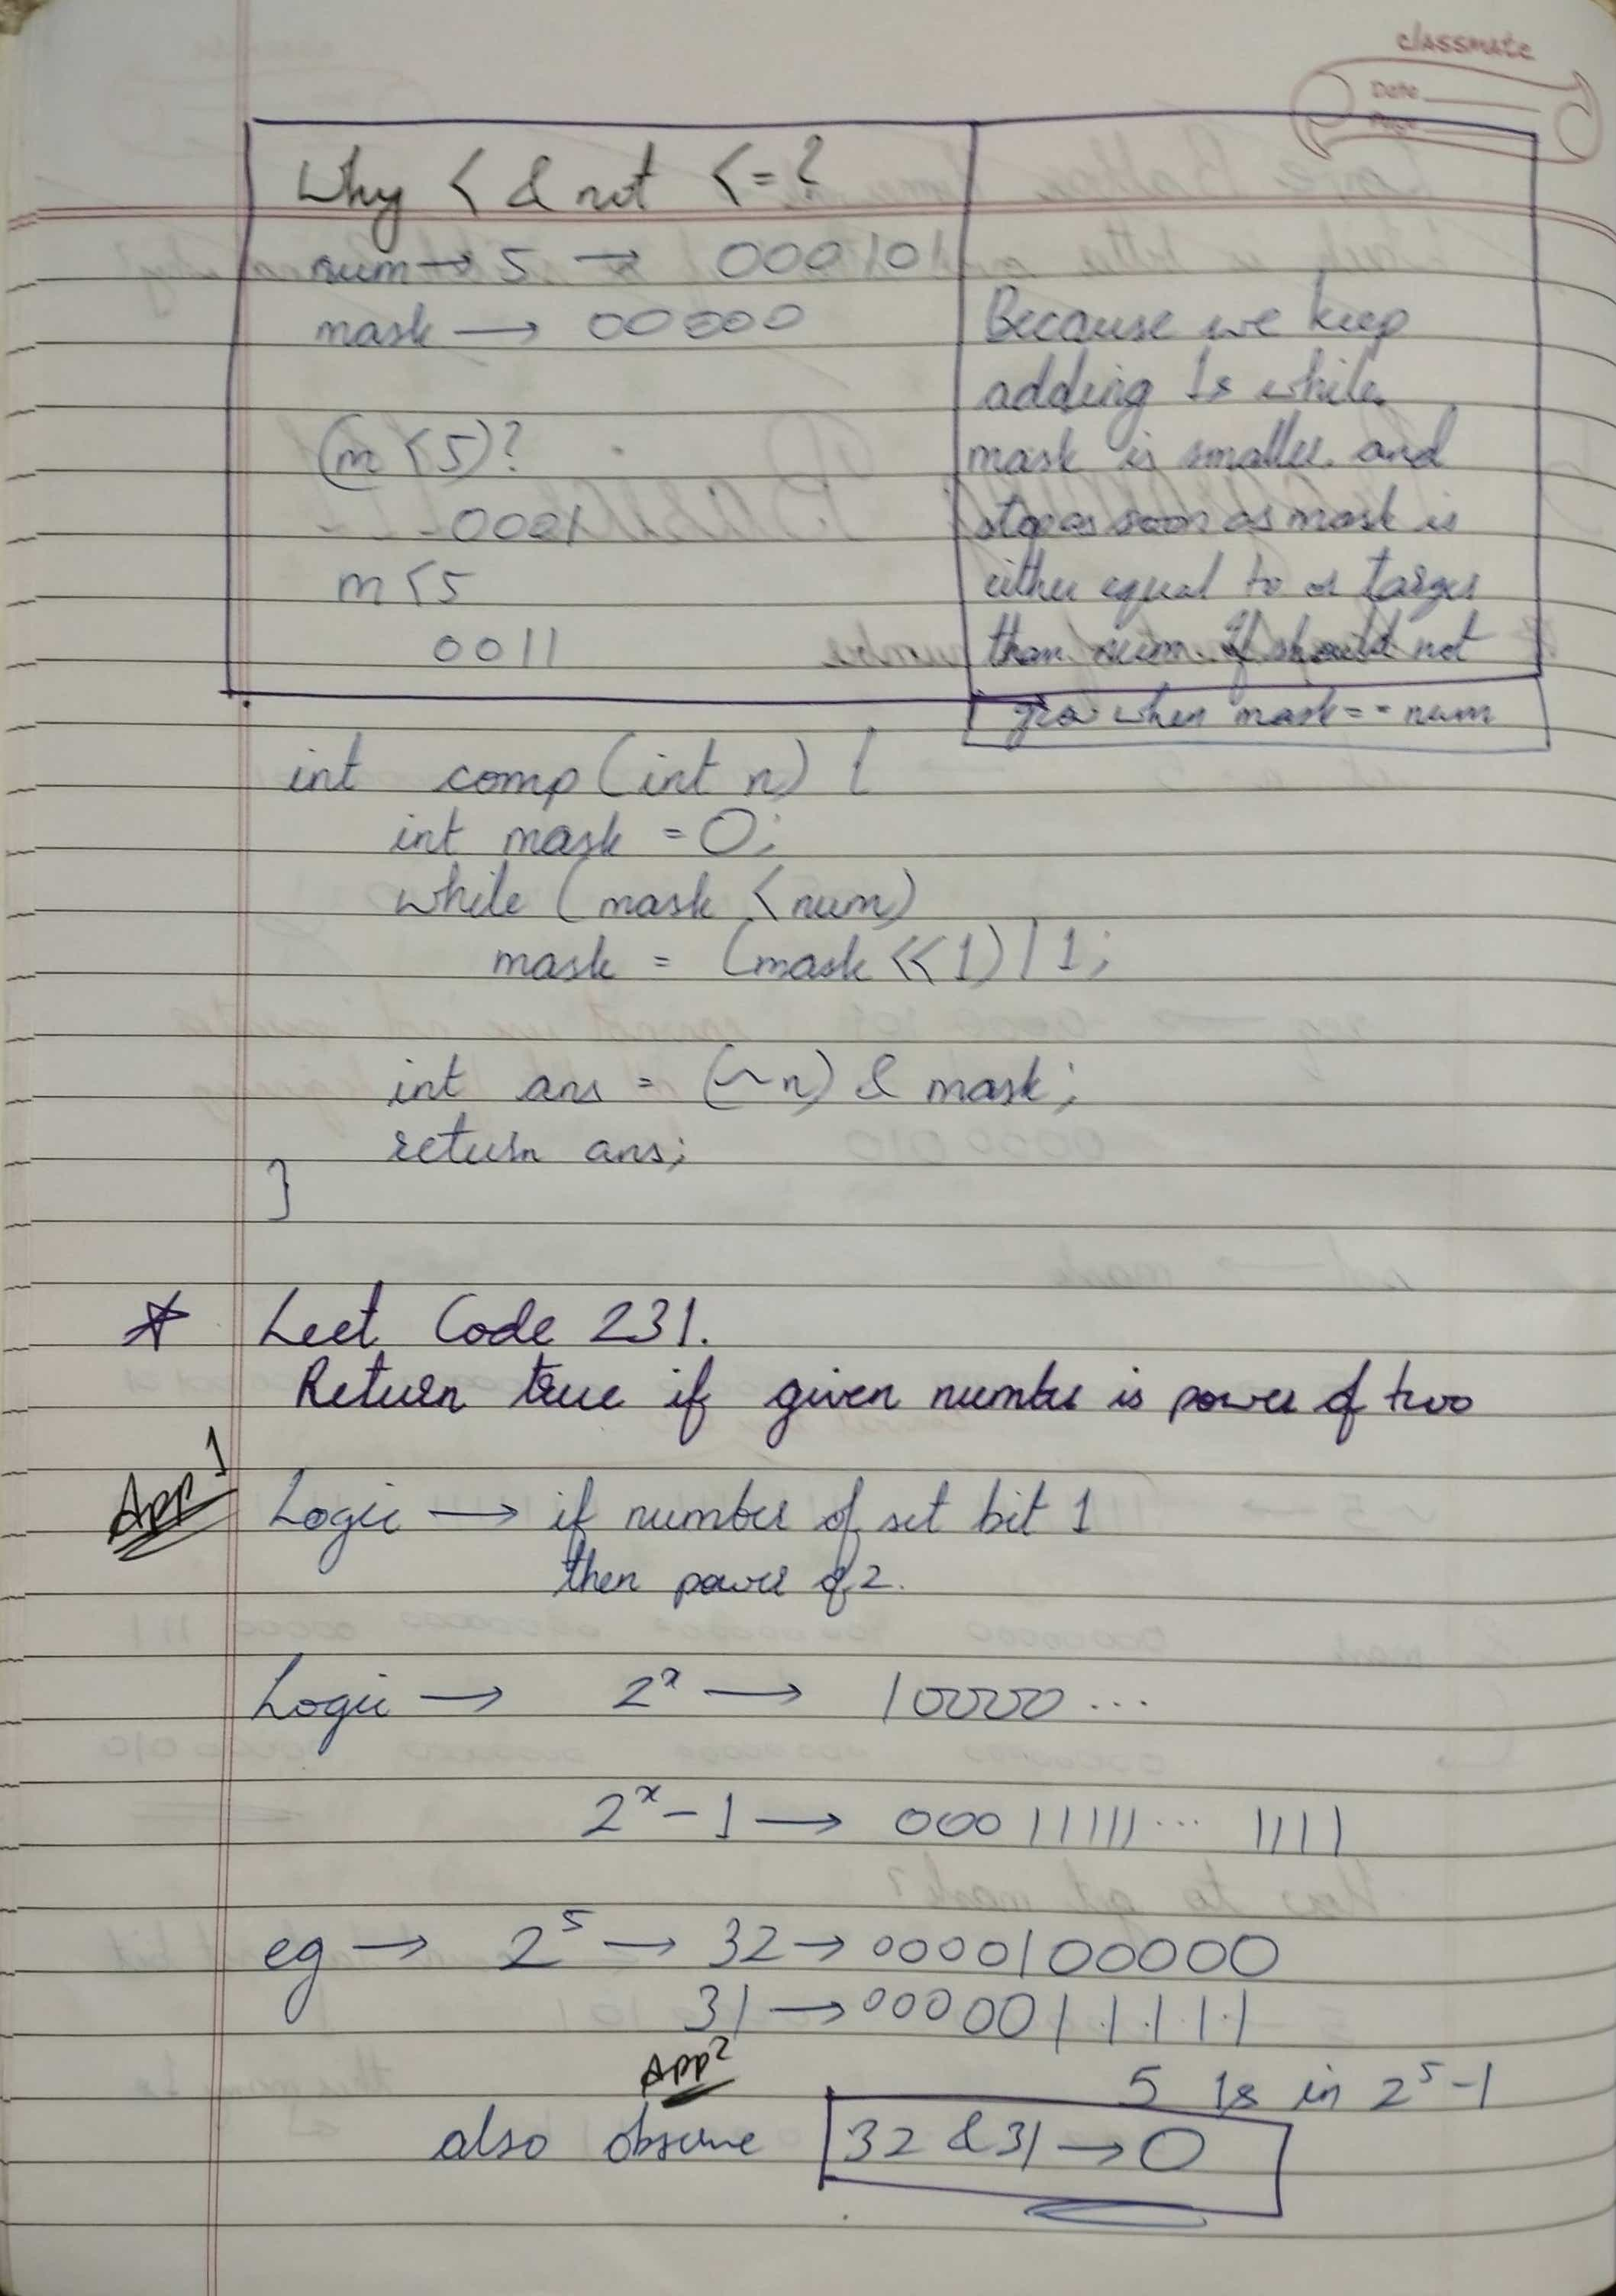 classmate
Date
Page
Why < & not <= ?
num → 5 → 000101
mask → 00000
(m < 5)?
0001
m < 5
0011
Because we keep
adding 1s while
mask is smaller and
stop as soon as mask is
either equal to or larger
than num. It should not
grow when mask == num
int comp (int n) {
int mask = 0;
while (mask < num)
mask = (mask << 1) | 1;
int ans = (~n) & mask;
return ans;
}
* Leet Code 231.
Return true if given number is power of two
App 1
Logic → if number of set bit 1
then power of 2.
Logic → 2ˣ → 100000...
2ˣ - 1 → 000 11111... 1111
eg → 2⁵ → 32 → 0000100000
31 → 0000011111
5 1s in 2⁵-1
App 2
also observe 32 & 31 → 0